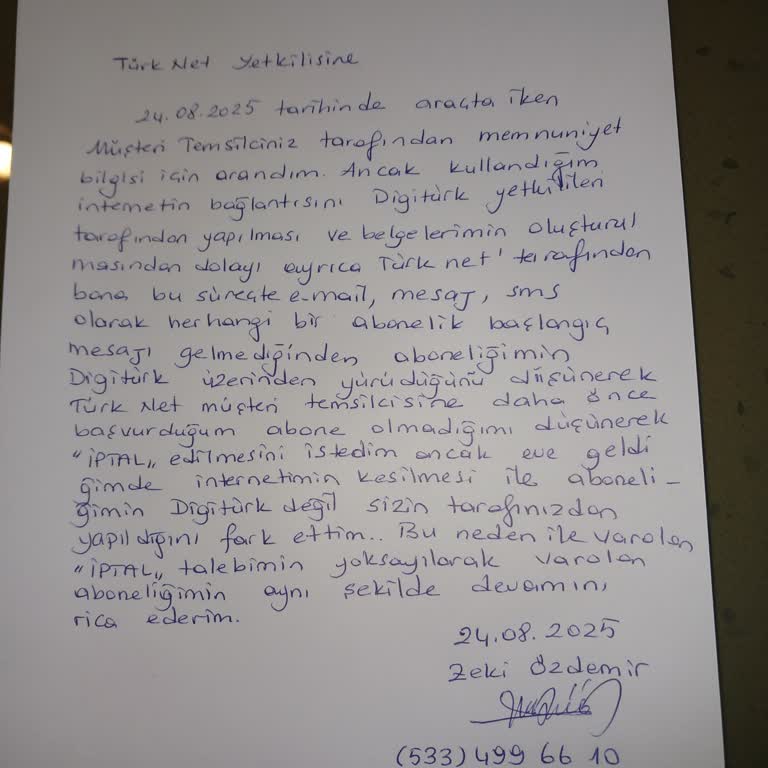 Türk Net Yetkilisine
24.08.2025 tarihinde araçta iken
Müşteri Temsilciniz tarafından memnuniyet
bilgisi için arandım. Ancak kullandığım
internetin bağlantısını Digitürk yetkilileri
tarafından yapılması ve belgelerimin oluşturul
masından dolayı ayrıca Türk net' tarafından
bana bu süreçte e-mail, mesaj, sms
olarak herhangi bir abonelik başlangıç
mesajı gelmediğinden aboneliğimin
Digitürk üzerinden yürüdüğünü düşünerek
Türk Net müşteri temsilcisine daha önce
başvurduğum abone olmadığımı düşünerek
"İPTAL„ edilmesini istedim ancak eve geldi
ğimde internetimin kesilmesi ile aboneli-
ğimin Digitürk değil sizin tarafınızdan
yapıldığını fark ettim.. Bu neden ile varolan
"İPTAL„ talebimin yoksayılarak varolan
aboneliğimin aynı şekilde devamını
rica ederim.
24.08.2025
Zeki Özdemir
(533) 499 66 10